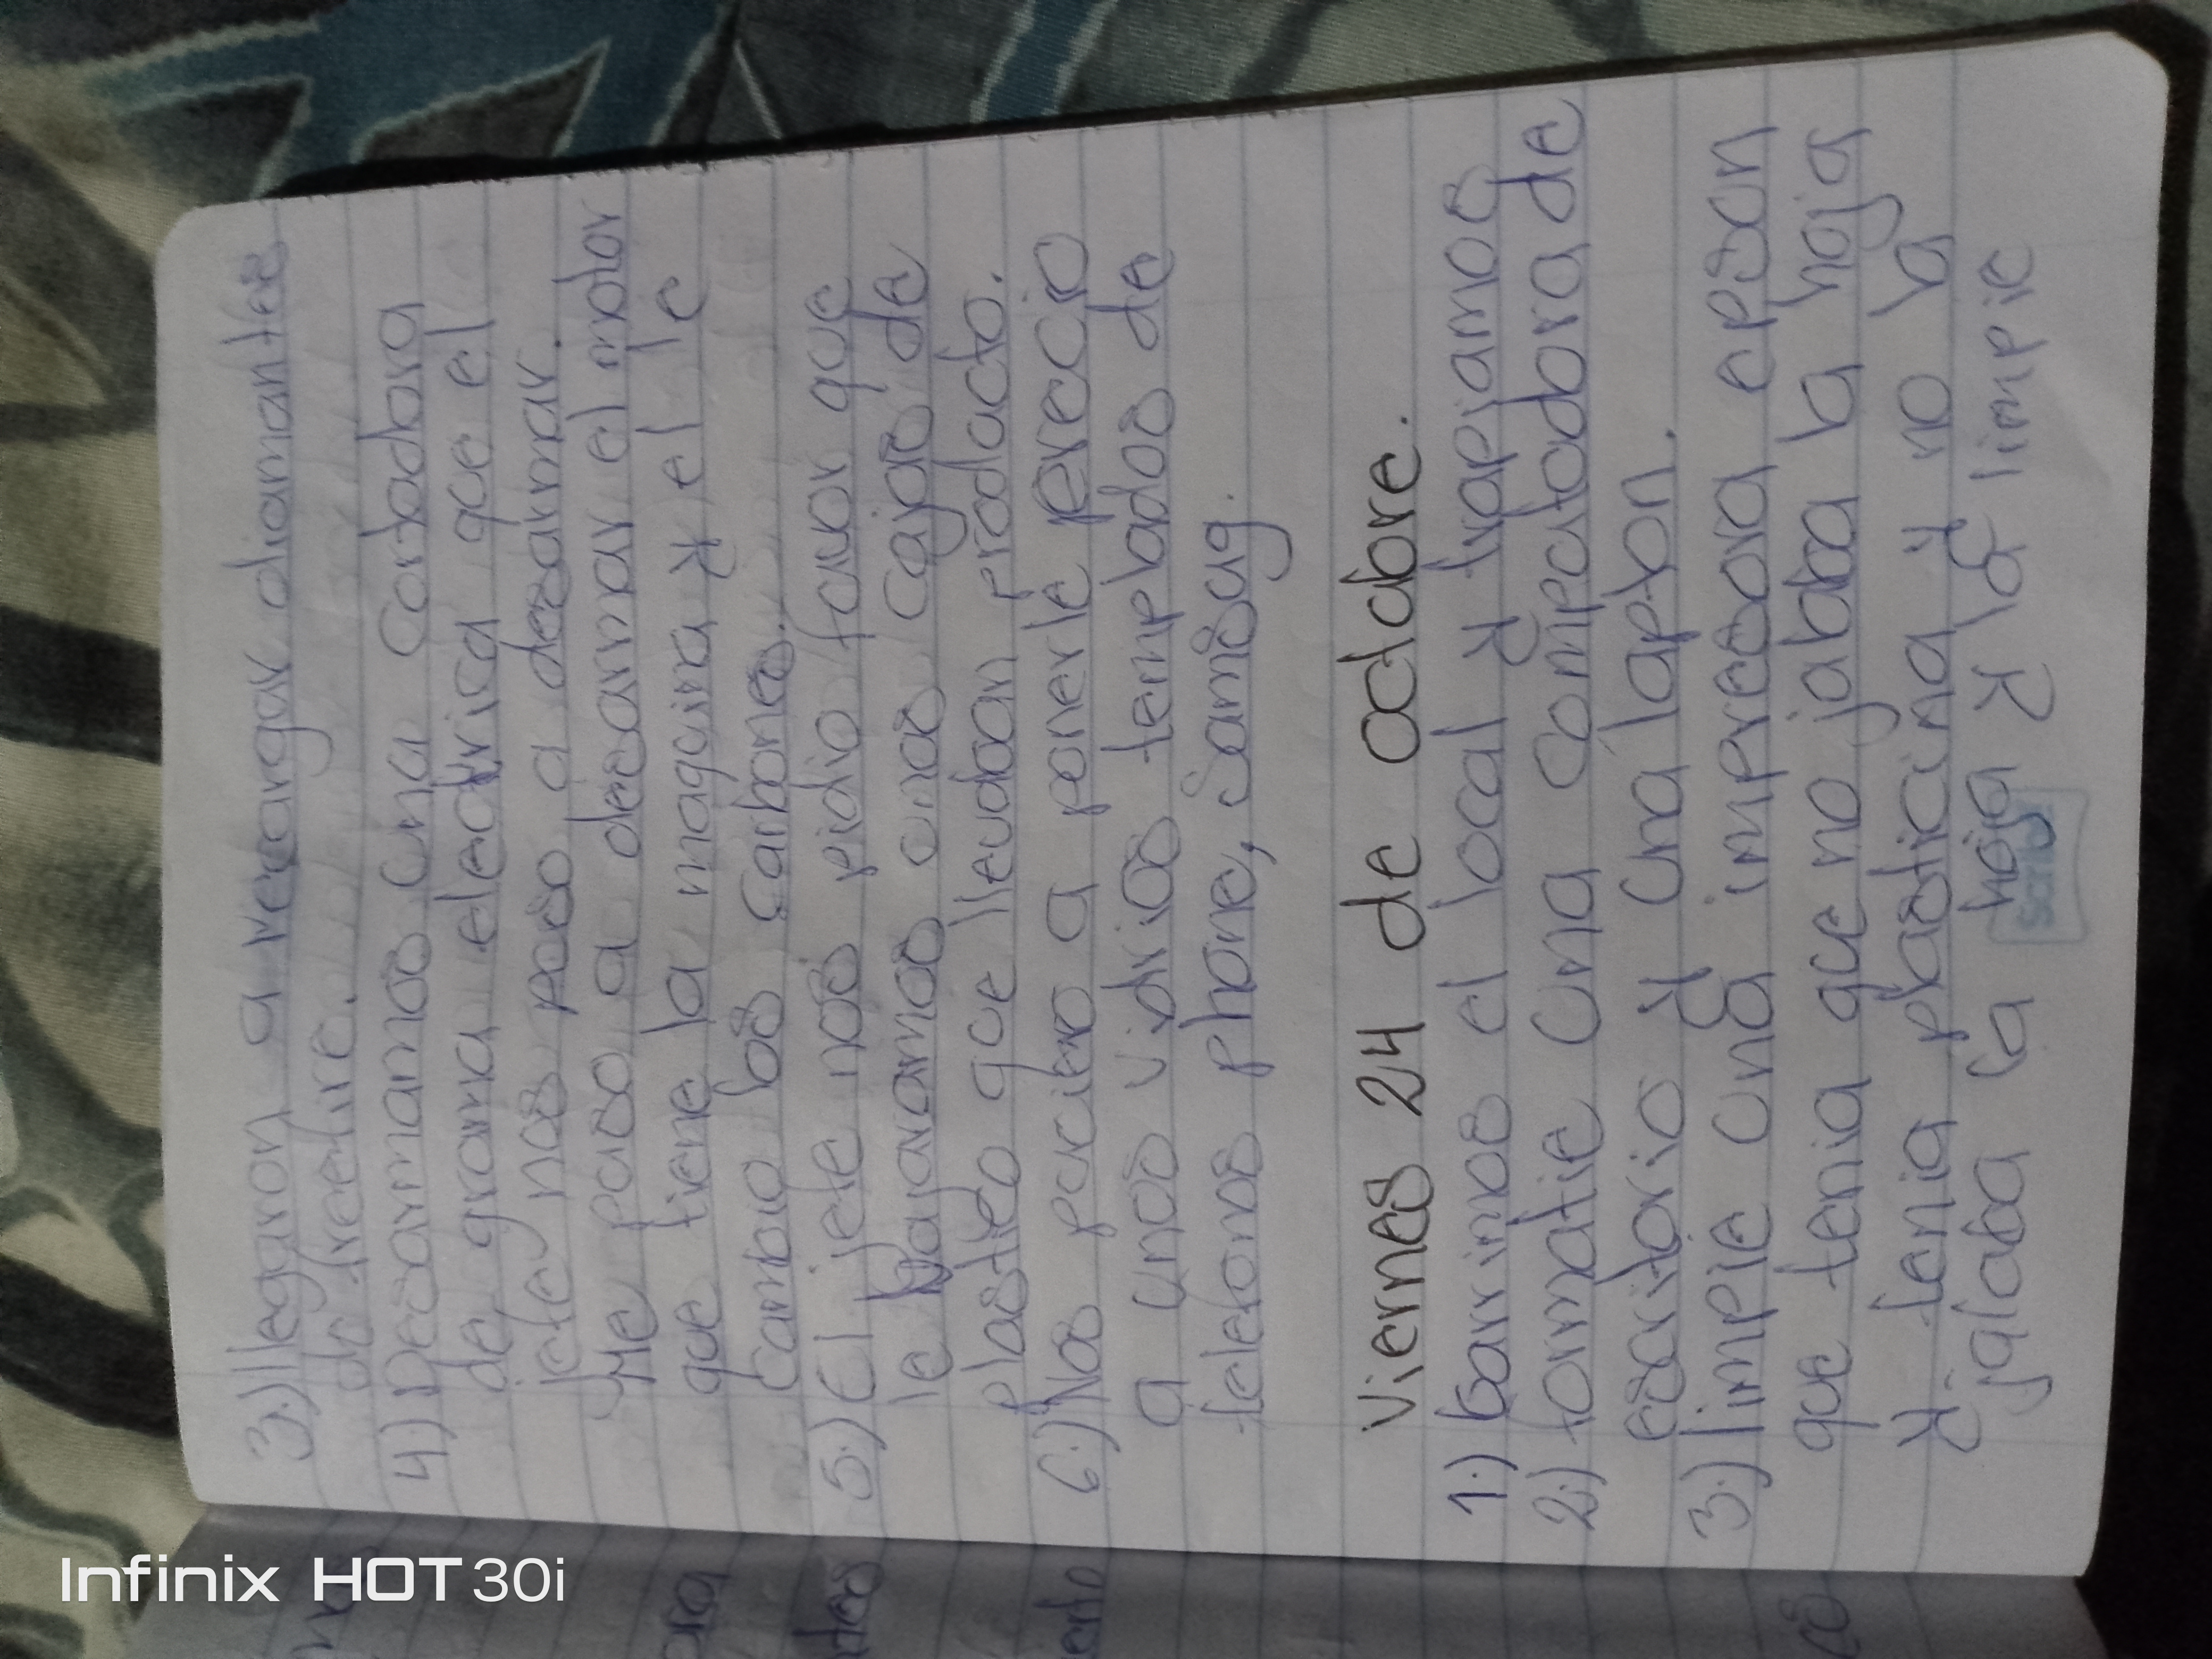 3.) llegaron a recargar diamantes
de freefire.
4.) Desarmamos una cortadora
de grama electrica que el
jefe nos puso a desarmar.
Me puso a desarmar el motor
que tiene la maquina y el le
cambio los carbones.
5.) El jefe nos pidio favor que
le bajaramos unas cajas de
plastico que llevaban producto.
6.) Nos pucieron a ponerle precio
a unos vidrios templados de
telefonos phone, Samsug.
Viernes 24 de octubre.
1.) barrimos el local y trapiamos
2.) formatie una computadora de
escritorio y una lapton.
3.) limpie una impresora epson
que tenia que no jalaba la hoja
y tenia plasticina y no la
jalaba la hoja y la limpie
Scribe
Infinix HOT 30i